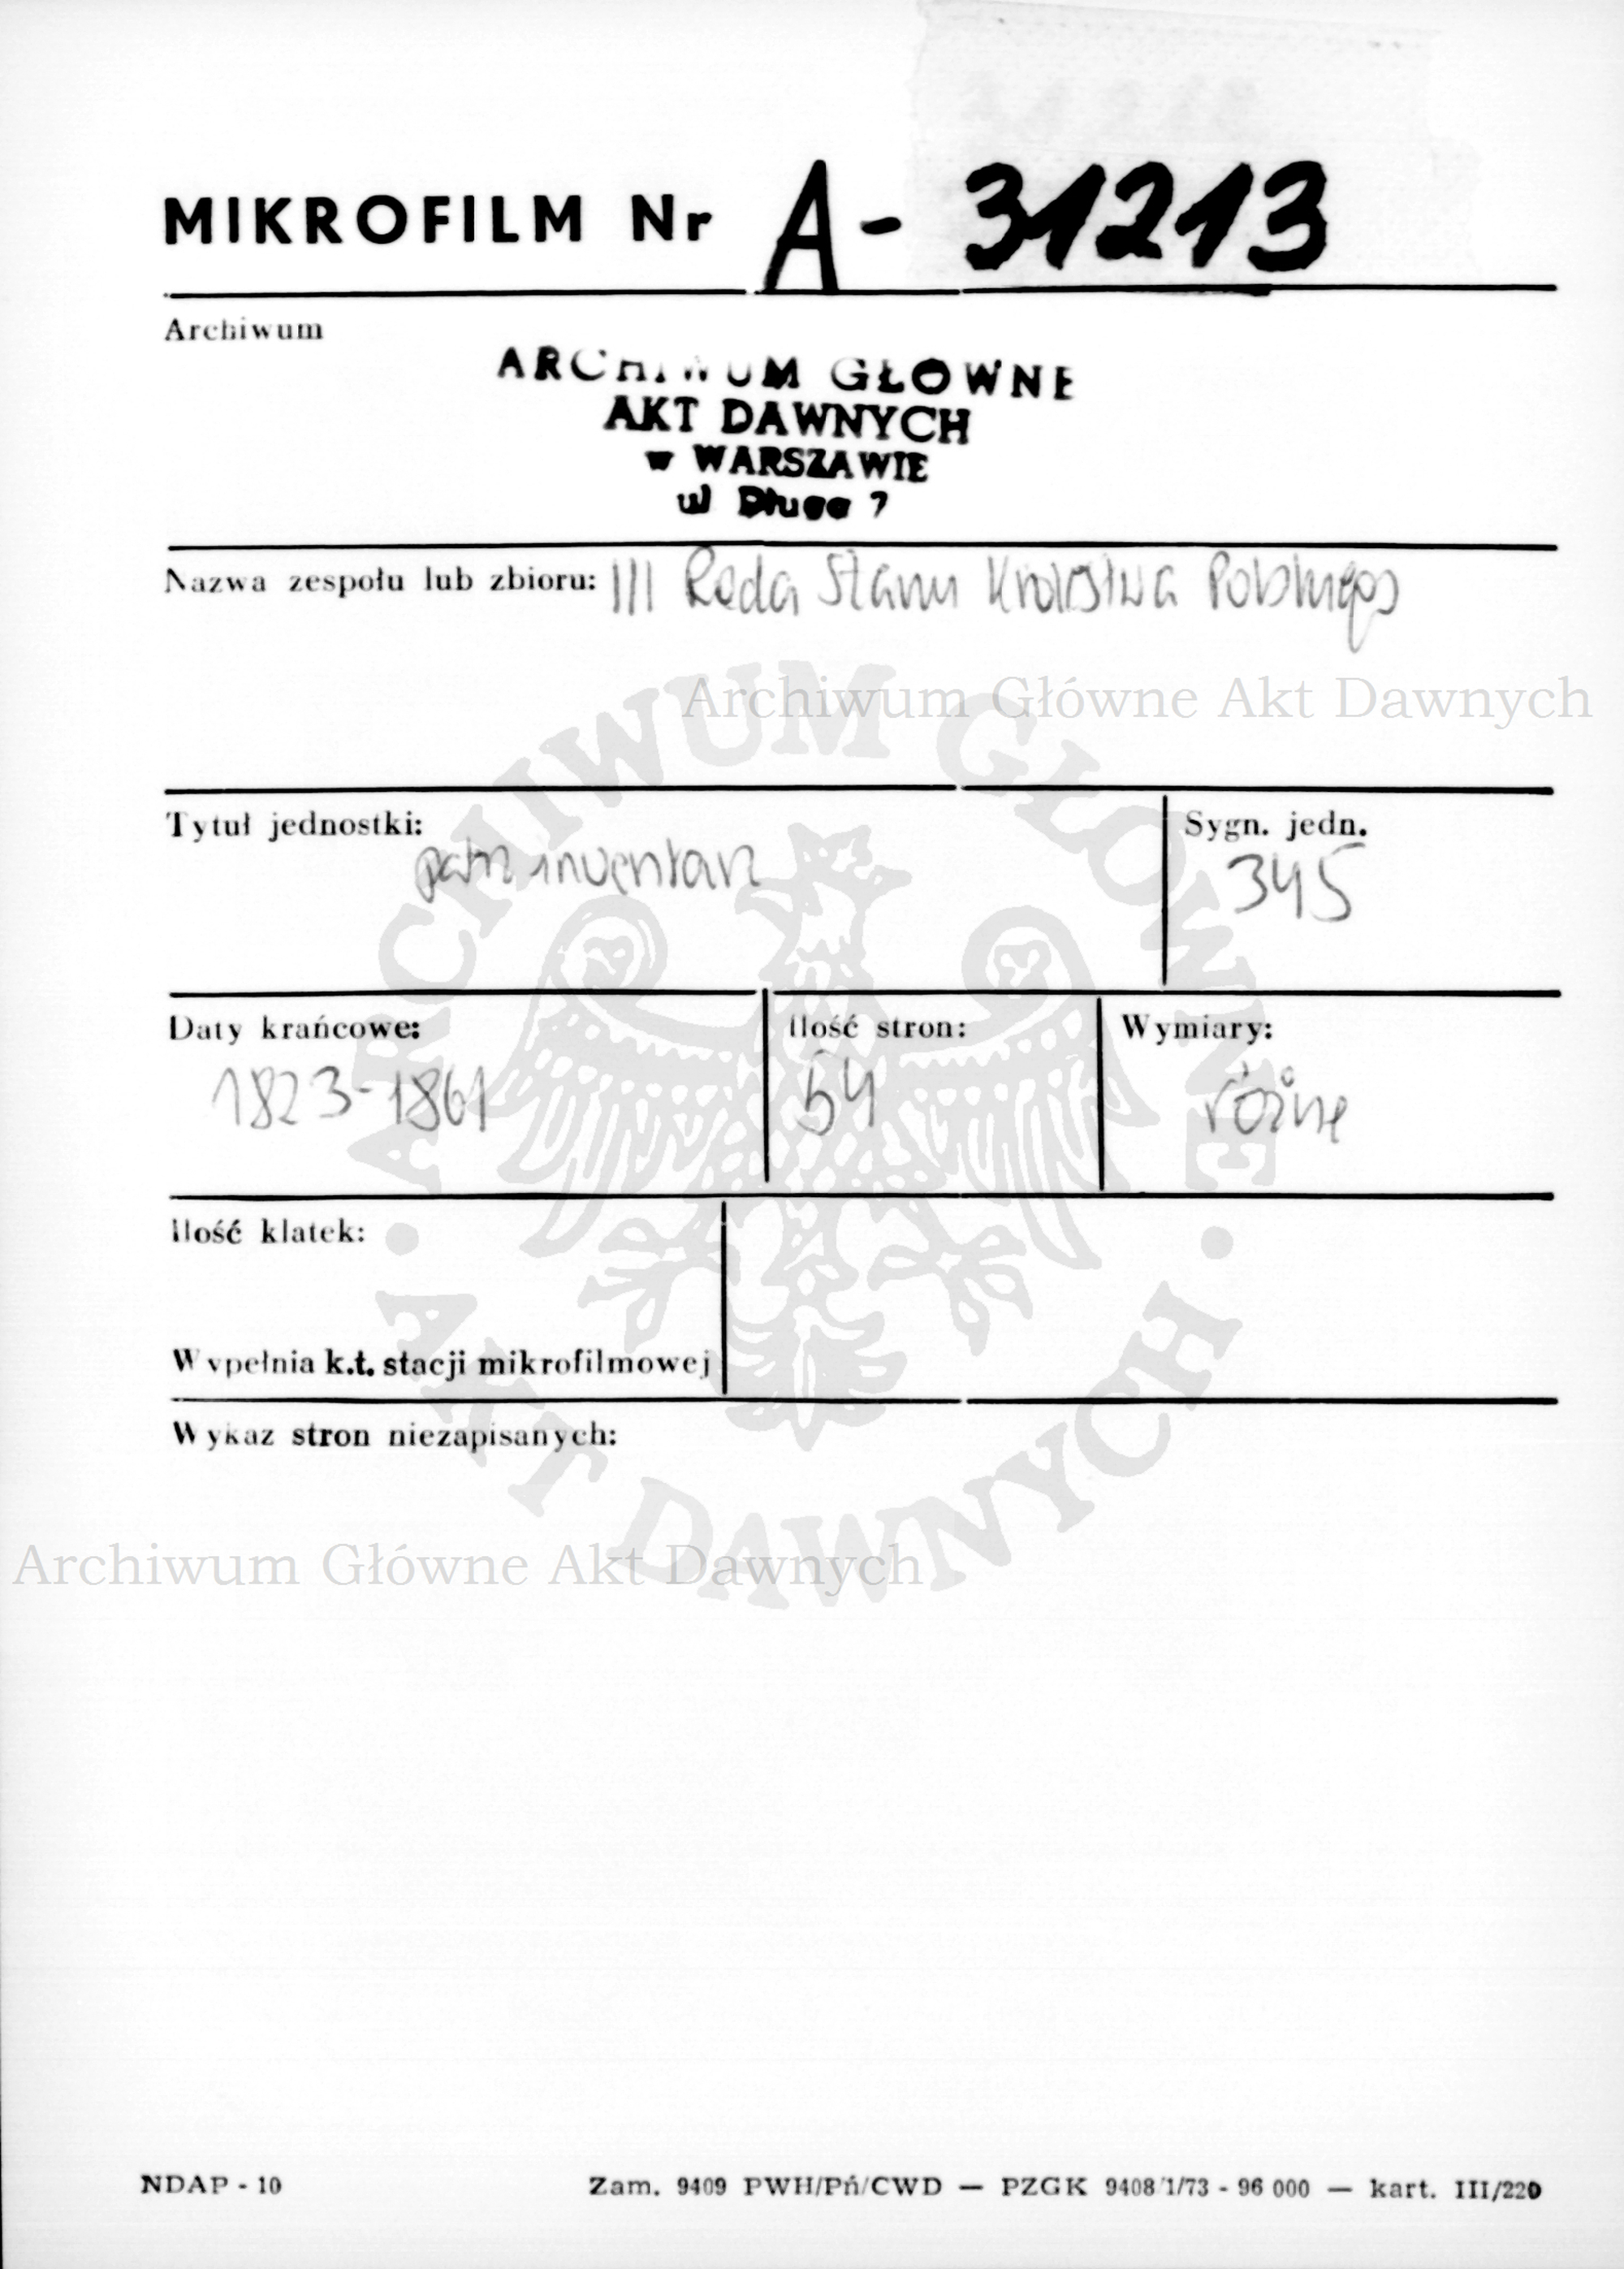 MIKROFILM Nr A- 31213
Archiwum
ARCHIWUM GŁOWNE
AKT DAWNYCH
w WARSZAWIE
ul Długa 7
Nazwa zespołu lub zbioru: III Rada Stanu Królestwa Polskiego
Archiwum Główne Akt Dawnych
Tytuł jednostki: patrz inwentarz
Sygn. jedn.
345
Daty krańcowe:
1823-1861
Ilość stron:
54
Wymiary:
różne
Ilość klatek:
Wypełnia k.t. stacji mikrofilmowej
Wykaz stron niezapisanych:
ARCHIWUM GŁÓWNE · AKT DAWNYCH ·
Archiwum Główne Akt Dawnych
NDAP - 10
Zam. 9409 PWH/Pń/CWD — PZGK 9408/1/73 - 96 000 — kart. III/220